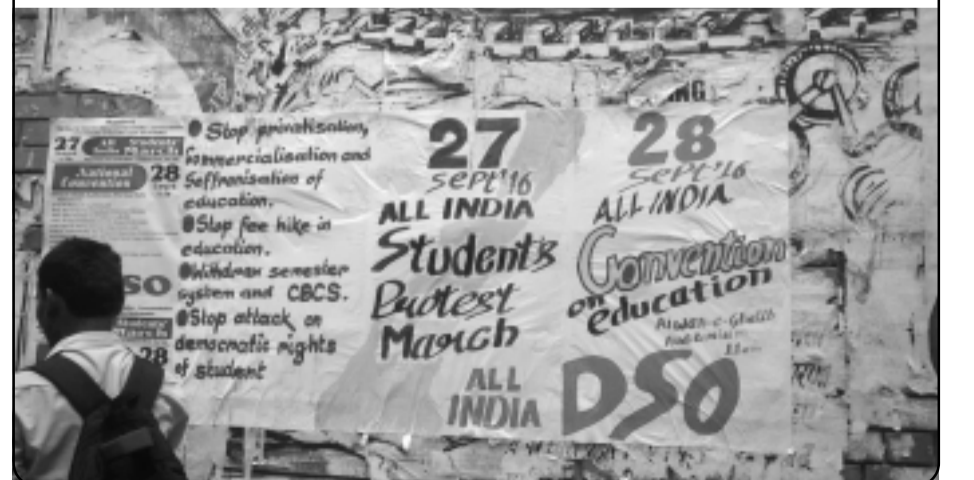 27
All Students'
India March
National
Convention
28
SO
28
Stop privatisation,
Commercialisation and
Seffronisation of
education.
Stop fee hike in
education.
Withdraw semester
system and CBCS.
Stop attack on
democratic rights
of student
27
SEPT'16
ALL INDIA
Students
Protest
March
28
SEPT'16
ALL INDIA
Convention
on
education
ALL
INDIA
DSO